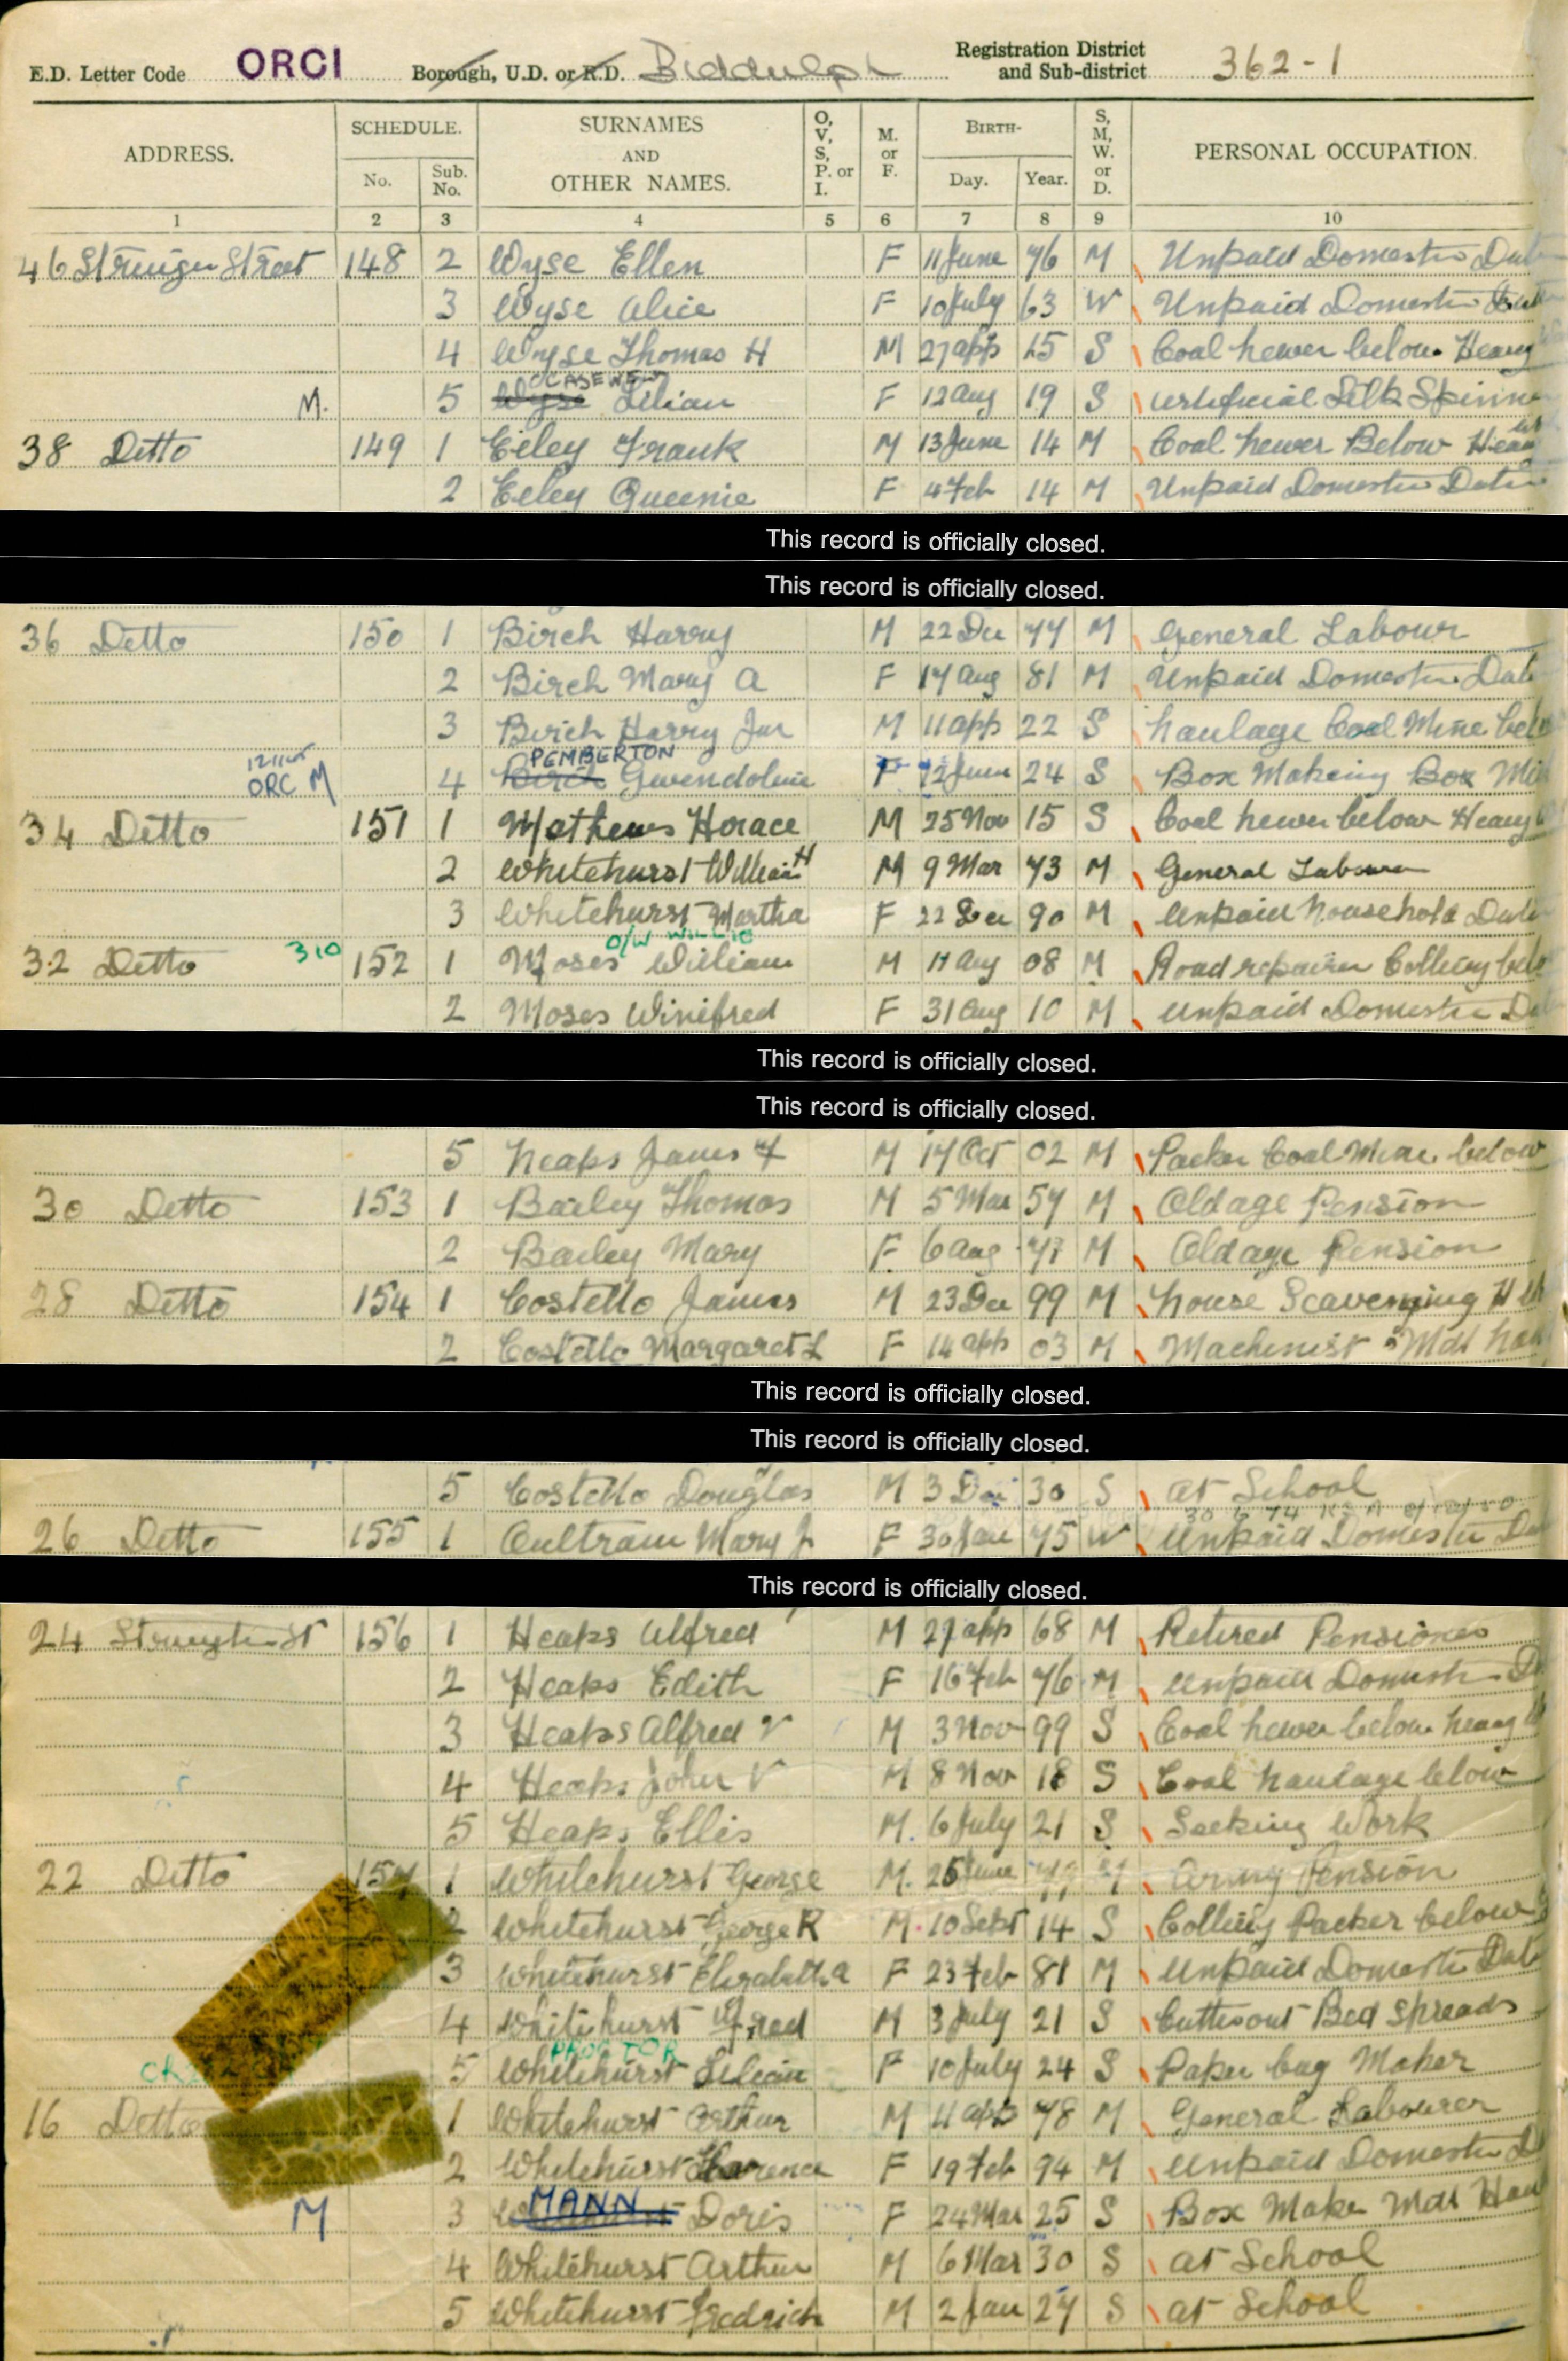 E.D. Letter Code ORCI Borough, U.D. or R.D. Biddulph Registration District and Sub-district 362-1
ADDRESS. SCHEDULE. No. Sub. No. SURNAMES AND OTHER NAMES. O, V, S, P. or I. M. or F. BIRTH- Day. Year. S, M, W. or D. PERSONAL OCCUPATION.
1 2 3 4 5 6 7 8 9 10
46 Stringer Street 148 2 Wyse Ellen F 11 June 76 M Unpaid Domestic Dut
3 Wyse Alice F 10 July 63 W Unpaid Domestic
4 Wyse Thomas H M 27 apr 15 S Coal hewer below Heavy
M. 5 Wyse Lilian F 12 aug 19 S artificial Silk Spinne
38 Ditto 149 1 Eeley Frank M 13 June 14 M Coal hewer Below
2 Eeley Queenie F 4 Feb 14 M Unpaid Domestic Dutie
This record is officially closed.
This record is officially closed.
36 Ditto 150 1 Birch Harry M 22 Dec 77 M General Labour
2 Birch Mary A F 17 Aug 81 M Unpaid Domestic Dut
3 Birch Harry Jnr M 11 apr 22 S haulage Coal Mine belo
PEMBERTON
ORC M 4 Birch Gwendoline F 12 June 24 S Box Makeing Box
34 Ditto 151 1 Mathews Horace M 25 Nov 15 S Coal hewer below Heavy
2 Whitehurst William H M 9 Mar 73 M General Labourer
3 Whitehurst Martha F 22 Dec 90 M Unpaid household Dut
O/W WILLIE
32 Ditto 310 152 1 Moses William M 11 Aug 08 M Road repairer Colliery bel
2 Moses Winifred F 31 Aug 10 M Unpaid Domestic
This record is officially closed.
This record is officially closed.
5 heaps James F M 14 Oct 02 M Packer Coal Mine below
30 Ditto 153 1 Bailey Thomas M 5 Mar 57 M Oldage Pension
2 Bailey Mary F 6 aug M Oldage Pension
28 Ditto 154 1 Costello James M 23 Dec 99 M house Scavenging
2 Costello Margaret L F 14 apr 03 M Machinist
This record is officially closed.
This record is officially closed.
5 Costello Douglas M 3 Dec 30 S at School
26 Ditto 155 1 Oultram Mary J F 30 Jan 75 W Unpaid Domestic
This record is officially closed.
24 156 1 Heaps Alfred M 27 apr 68 M Retired Pensioner
2 Heaps Edith F 16 Feb 76 M Unpaid Domestic
3 Heaps Alfred V M 3 Nov 99 S Coal hewer below heavy
4 Heaps John V M 8 Nov 18 S Coal haulage below
5 Heaps Ellis M. 6 July 21 S Seeking Work
22 Ditto 157 1 Whitehurst George M. 25 June M Army Pension
2 Whitehurst George R M. 10 Sept 14 S Colliery Packer below
3 Whitehurst Elizabeth a F 23 Feb 81 M Unpaid Domestic Dut
4 Whitehurst Fred M 3 July 21 S Cutter out Bed Spreads
PROCTOR
5 Whitehurst Lilian F 10 July 24 S Paper bag Maker
16 Ditto 1 Whitehurst Arthur M 4 apr 78 M General Labourer
2 Whitehurst Florence F 19 Feb 94 M Unpaid Domestic
MANN
M 3 Doris F 24 Mar 25 S Box Make
4 Whitehurst Arthur M 6 Mar 30 S at School
5 Whitehurst Fredrich M 2 Jan 27 S at School